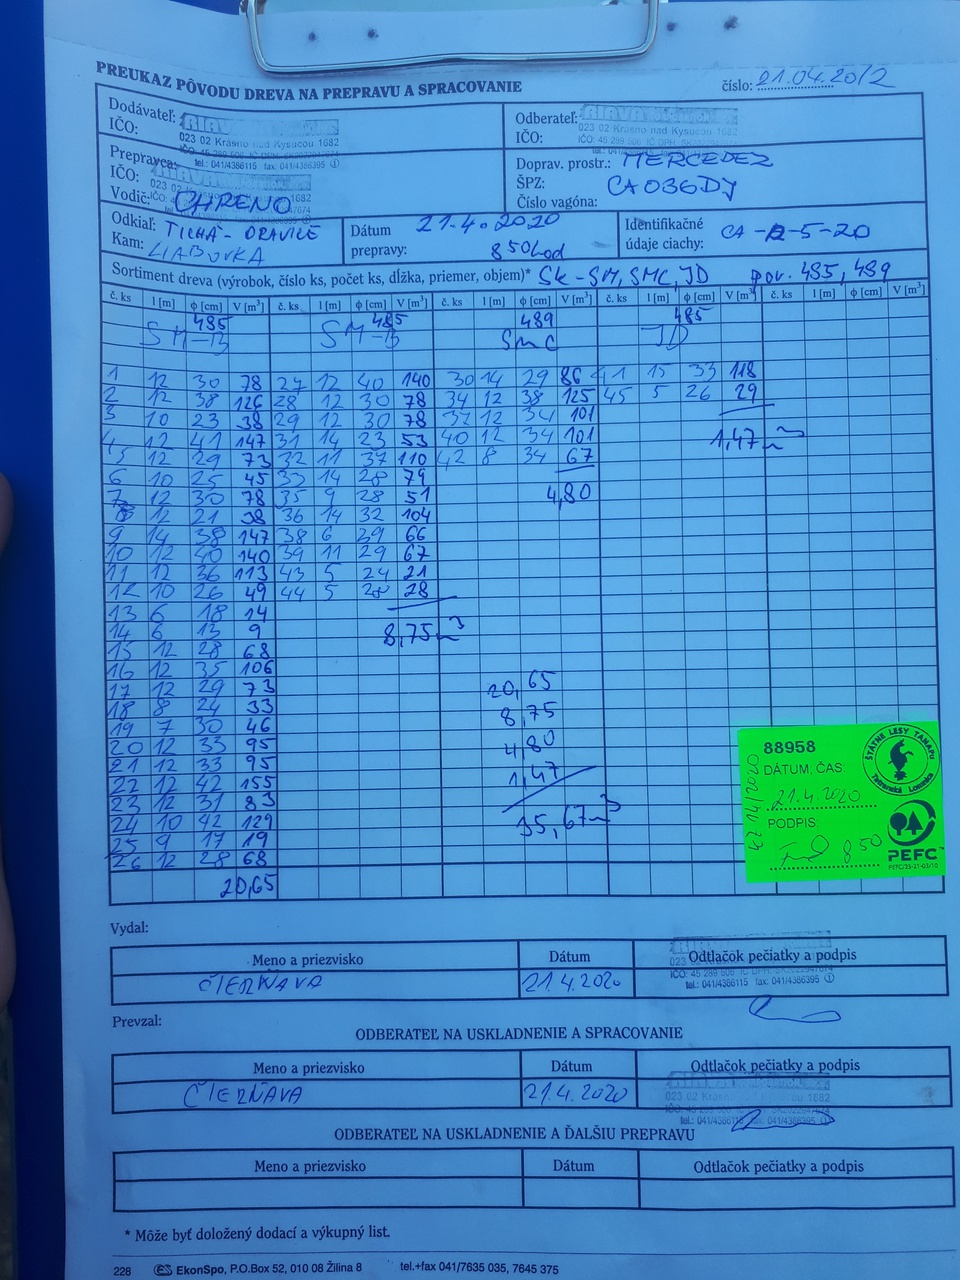 PREUKAZ PÔVODU DREVA NA PREPRAVU A SPRACOVANIE
číslo: 21.04.20/2
Dodávateľ:
IČO:
023 02 Krásno nad Kysucou 1682
tel.: 041/4386115 fax: 041/4386395
Odberateľ:
IČO:
023 02 Krásno nad Kysucou 1682
Prepravca:
IČO:
Vodič: CHRENO
Doprav. prostr.: MERCEDEZ
ŠPZ: CA036DY
Číslo vagóna:
Odkiaľ: TICHÁ - ORAVICE
Kam:
Dátum
prepravy:
21.4.2020
850 hod
Identifikačné
údaje ciachy:
CA-R-5-20
Sortiment dreva (výrobok, číslo ks, počet ks, dĺžka, priemer, objem)* Sk-SM, SMC, JD por. 485, 489
č. ks l [m] ϕ [cm] V [m³] č. ks. l [m] ϕ [cm] V [m³] č. ks l [m] ϕ [cm] V [m³] č. ks l [m] ϕ [cm] V [m³] č. ks l [m] ϕ [cm] V [m³]
485 485 489 485
SM-B SM-B SMC JD
1 12 30 78 27 12 40 140 30 14 29 86 41 15 33 118
2 12 38 126 28 12 30 78 34 12 38 125 45 5 26 29
3 10 23 38 29 12 30 78 37 12 34 101
4 12 41 147 31 14 23 53 40 12 34 101 1,47m³
5 12 29 73 32 11 37 110 42 8 34 67
6 10 25 45 33 14 28 79
7 12 30 78 35 9 28 51 4,80
8 12 21 38 36 14 32 104
9 14 38 147 38 6 39 66
10 12 40 140 39 11 29 67
11 12 36 113 43 5 24 21
12 10 26 49 44 5 28 28
13 6 18 14
14 6 13 9 8,75m³
15 12 28 68
16 12 35 106
17 12 29 73 20,65
18 8 24 33 8,75
19 7 30 46 4,80
20 12 33 95 1,47
21 12 33 95
22 12 42 155 35,67m³
23 12 31 83
24 10 42 129
25 9 17 19
26 12 28 68
20,65
88958
DÁTUM, ČAS:
21.4.2020
PODPIS:
850
ŠTÁTNE LESY TANAPU
Tatranská Lomnica
PEFC
PEFC/23-21-03/10
Vydal:
Meno a priezvisko Dátum Odtlačok pečiatky a podpis
ČIERŇAVA 21.4.2020
tel.: 041/4386115 fax: 041/4386395
Prevzal:
ODBERATEĽ NA USKLADNENIE A SPRACOVANIE
Meno a priezvisko Dátum Odtlačok pečiatky a podpis
ČIERŇAVA 21.4.2020
023 02 Krásno nad Kysucou 1682
ODBERATEĽ NA USKLADNENIE A ĎALŠIU PREPRAVU
Meno a priezvisko Dátum Odtlačok pečiatky a podpis
* Môže byť doložený dodací a výkupný list.
228 ES EkonSpo, P.O.Box 52, 010 08 Žilina 8 tel.+fax 041/7635 035, 7645 375